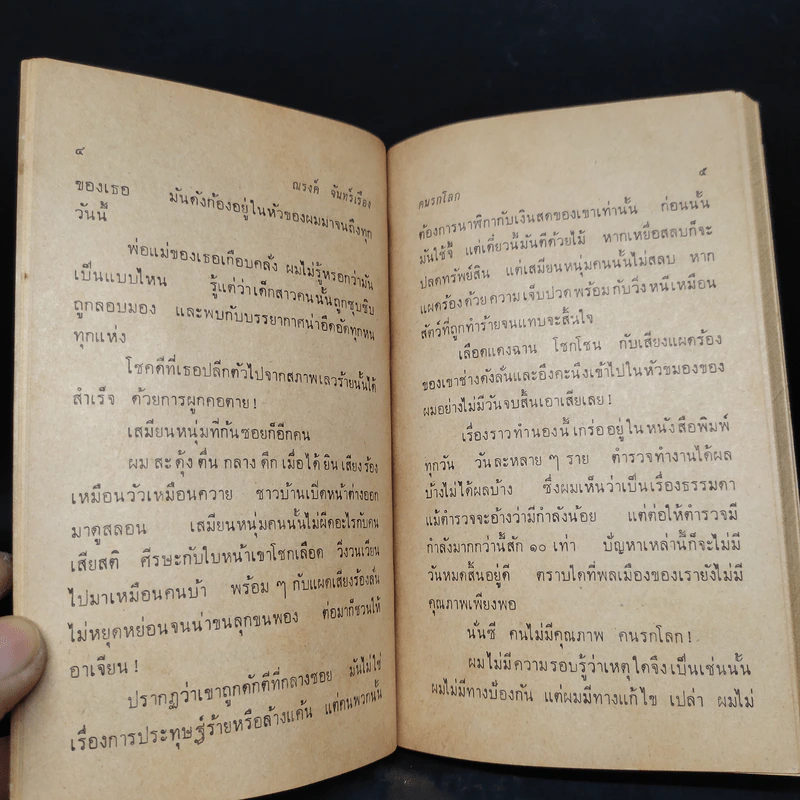 ๔
ณรงค์ จันทร์เรือง
ของเธอ มันดังก้องอยู่ในหัวของผมมาจนถึงทุก
วันนี้
พ่อแม่ของเธอเกือบคลั่ง ผมไม่รู้หรอกว่ามัน
เป็นแบบไหน รู้แต่ว่าเด็กสาวคนนั้นถูกซุบซิบ
ถูกลอบมอง และพบกับบรรยากาศน่าอึดอัดทุกหน
ทุกแห่ง
โชคดีที่เธอปลีกตัวไปจากสภาพเลวร้ายนั้นได้
สำเร็จ ด้วยการผูกคอตาย!
เสมียนหนุ่มที่ก้นซอยก็อีกคน
ผมสะดุ้งตื่นกลางดึกเมื่อได้ยินเสียงร้อง
เหมือนวัวเหมือนควาย ชาวบ้านเปิดหน้าต่างออก
มาดูสลอน เสมียนหนุ่มคนนั้นไม่ผิดอะไรกับคน
เสียสติ ศีรษะกับใบหน้าเขาโชกเลือด วิ่งวนเวียน
ไปมาเหมือนคนบ้า พร้อม ๆ กับแผดเสียงร้องลั่น
ไม่หยุดหย่อนจนน่าขนลุกขนพอง ต่อมาก็ชวนให้
อาเจียน!
ปรากฏว่าเขาถูกดักตีที่กลางซอย มันไม่ใช่
เรื่องการประทุษฐ์ร้ายหรือล้างแค้น แต่คนพวกนั้น
๕
คนรกโลก
ต้องการนาฬิกากับเงินสดของเขาเท่านั้น ก่อนนั้น
มันใช้จี้ แต่เดี๋ยวนี้มันตีด้วยไม้ หากเหยื่อสลบก็จะ
ปลดทรัพย์สิน แต่เสมียนหนุ่มคนนั้นไม่สลบ หาก
แผดร้องด้วยความเจ็บปวดพร้อมกับวิ่งหนีเหมือน
สัตว์ที่ถูกทำร้ายจนแทบจะสิ้นใจ
เลือดแดงฉาน โชกโชน กับเสียงแผดร้อง
ของเขาช่างดังลั่นและอึงคะนึงเข้าไปในหัวขมองของ
ผมอย่างไม่มีวันจบสิ้นเอาเสียเลย!
เรื่องราวทำนองนี้เกร่ออยู่ในหนังสือพิมพ์
ทุกวัน วันละหลาย ๆ ราย ตำรวจทำงานได้ผล
บ้างไม่ได้ผลบ้าง ซึ่งผมเห็นว่าเป็นเรื่องธรรมดา
แม้ตำรวจจะอ้างว่ามีกำลังน้อย แต่ต่อให้ตำรวจมี
กำลังมากกว่านี้สัก ๑๐ เท่า ปัญหาเหล่านี้ก็จะไม่มี
วันหมดสิ้นอยู่ดี ตราบใดที่พลเมืองของเรายังไม่มี
คุณภาพเพียงพอ
นั่นซี คนไม่มีคุณภาพ คนรกโลก!
ผมไม่มีความรอบรู้ว่าเหตุใดจึงเป็นเช่นนั้น
ผมไม่มีทางป้องกัน แต่ผมมีทางแก้ไข เปล่า ผมไม่